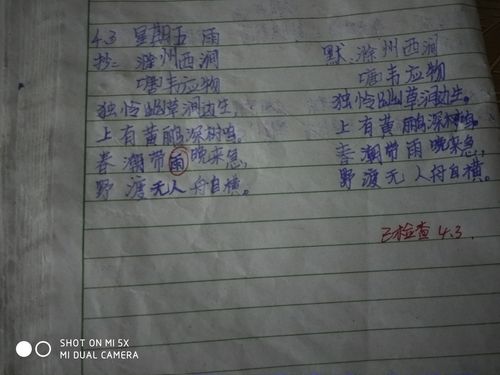 4.3 星期五 雨
抄: 滁州西涧
唐韦应物
独怜幽草涧边生,
上有黄鹂深树鸣。
春潮带雨晚来急,
野渡无人舟自横。
默: 滁州西涧
唐韦应物
独怜幽草涧边生。
上有黄鹂深树鸣。
春潮带雨晚来急,
野渡无人舟自横。
已检查 4.3.
SHOT ON MI 5X
MI DUAL CAMERA